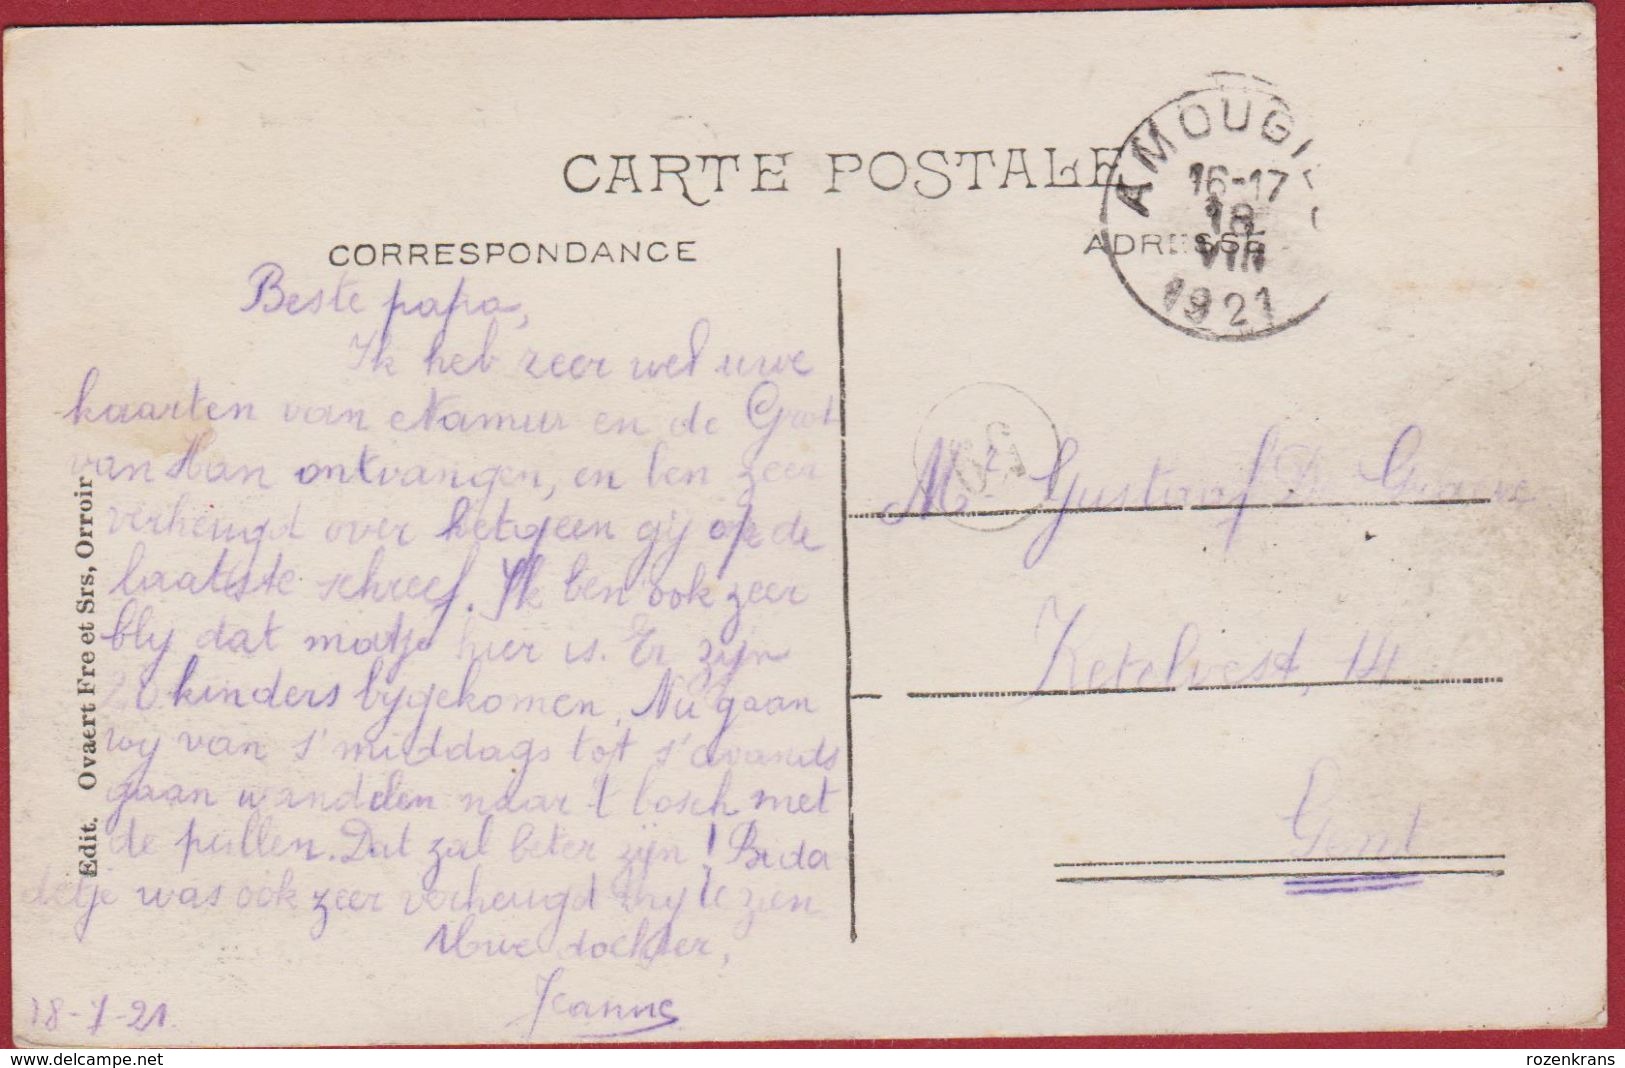 CARTE POSTALE
AMOUGI
16-17
18
VII
1921
CORRESPONDANCE
ADRESSE
Beste papa,
Ik heb zeer wel uwe
kaarten van Namur en de Grot
van Han ontvangen, en ben zeer
verheugd over hetgeen gij op de
laatste schreef. Ik ben ook zeer
bly dat matje hier is. Er zijn
20 kinders bygekomen. Nu gaan
wy van s'middags tot s'avonds
gaan wandelen naar 't bosch met
de pullen. Dat zal beter zijn! Bida
detje was ook zeer verheugd my te zien
Uwe dochter,
Jeanne
18-7-21.
Mr Gustaaf De
Ketelvest, 14
Gent
Edit. Ovaert Fre et Srs, Orroir
delcampe.net
rozenkrans